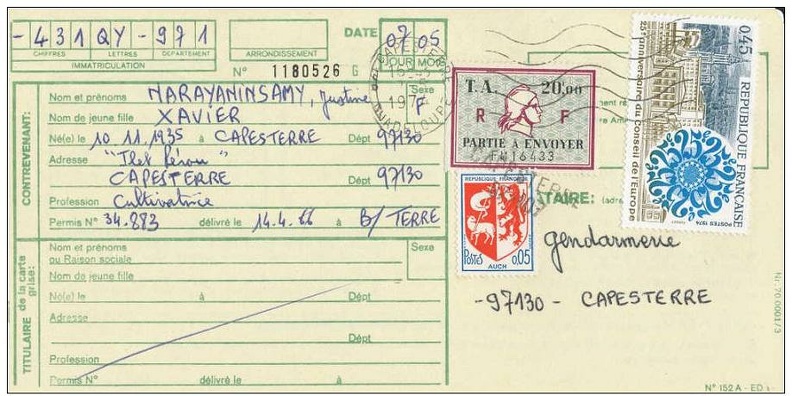 - 431 QY - 971
CHIFFRES LETTRES DÉPARTEMENT
IMMATRICULATION
ARRONDISSEMENT
DATE 07 05
JOUR MOIS
N° 1180526 G
CONTREVENANT:
Nom et prénoms NARAYANINSAMY, Justine
Sexe F
Nom de jeune fille XAVIER
Né(e) le 10 11.1935 à CAPESTERRE Dépt 97130
Adresse
CAPESTERRE 97130
Profession Cultivatrice
Permis N° 34.883 délivré le 14.4.66 à B/ TERRE
TITULAIRE de la carte grise:
Nom et prénoms
ou Raison sociale
Sexe
Nom de jeune fille
Né(e) le à Dépt
Adresse
Dépt
Profession
Permis N° délivré le à
T.A. 20,00
R F
PARTIE A ENVOYER
REPUBLIQUE FRANÇAISE
POSTES
AUCH 0,05
0,45
25e anniversaire du Conseil de l'Europe
REPUBLIQUE FRANÇAISE
POSTES 1974
CAPESTERRE
GUADELOUPE
TAIRE:
Gendarmerie
- 97130 - CAPESTERRE
N° 152 A - ED